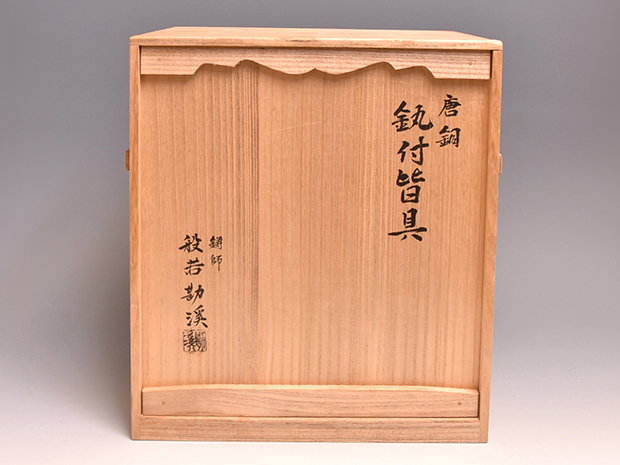 唐銅
釻付皆具
鋳師
般若勘溪